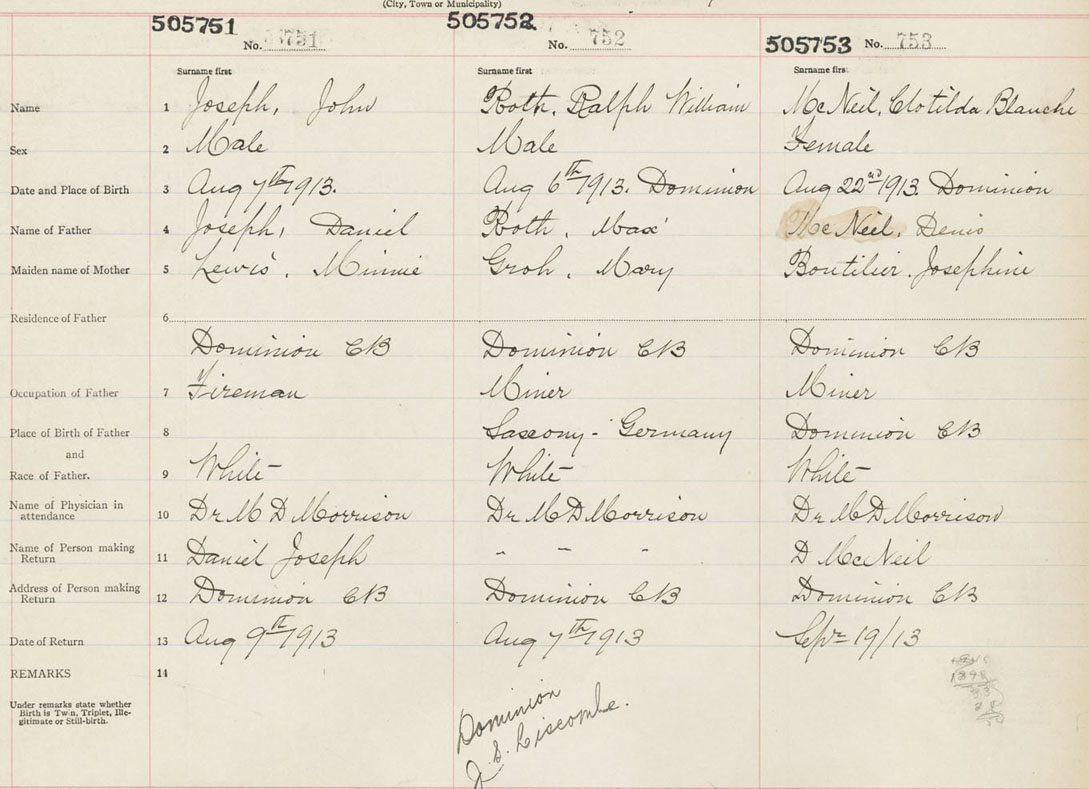 (City, Town or Municipality)
505751 No. 751 505752 No. 752 505753 No. 753
Surname first Surname first Surname firs
Name 1 Joseph, John Roth, Ralph William McNeil, Clotilda Blanche
Sex 2 Male Male Female
Date and Place of Birth 3 Aug 7th 1913. Aug 6th 1913. Dominion Aug 22nd 1913 Dominion
Name of Father 4 Joseph, Daniel Roth, Max McNeil, Denis
Maiden name of Mother 5 Lewis, Minnie Groh, Mary Boutilier, Josephine
Residence of Father 6
Dominion CB Dominion CB Dominion CB
Occupation of Father 7 Fireman Miner Miner
Place of Birth of Father 8 Saxony - Germany Dominion CB
and
Race of Father. 9 White White White
Name of Physician in
attendance 10 Dr M D Morrison Dr M D Morrison Dr M D Morrison
Name of Person making
Return 11 Daniel Joseph " " " D McNeil
Address of Person making
Return 12 Dominion CB Dominion CB Dominion CB
Date of Return 13 Aug 9th 1913 Aug 7th 1913 Sept 19/13
REMARKS 14
Under remarks state whether
Birth is Twin, Triplet, Ille-
gitimate or Still-birth.
Dominion
J. S. Liscombe.